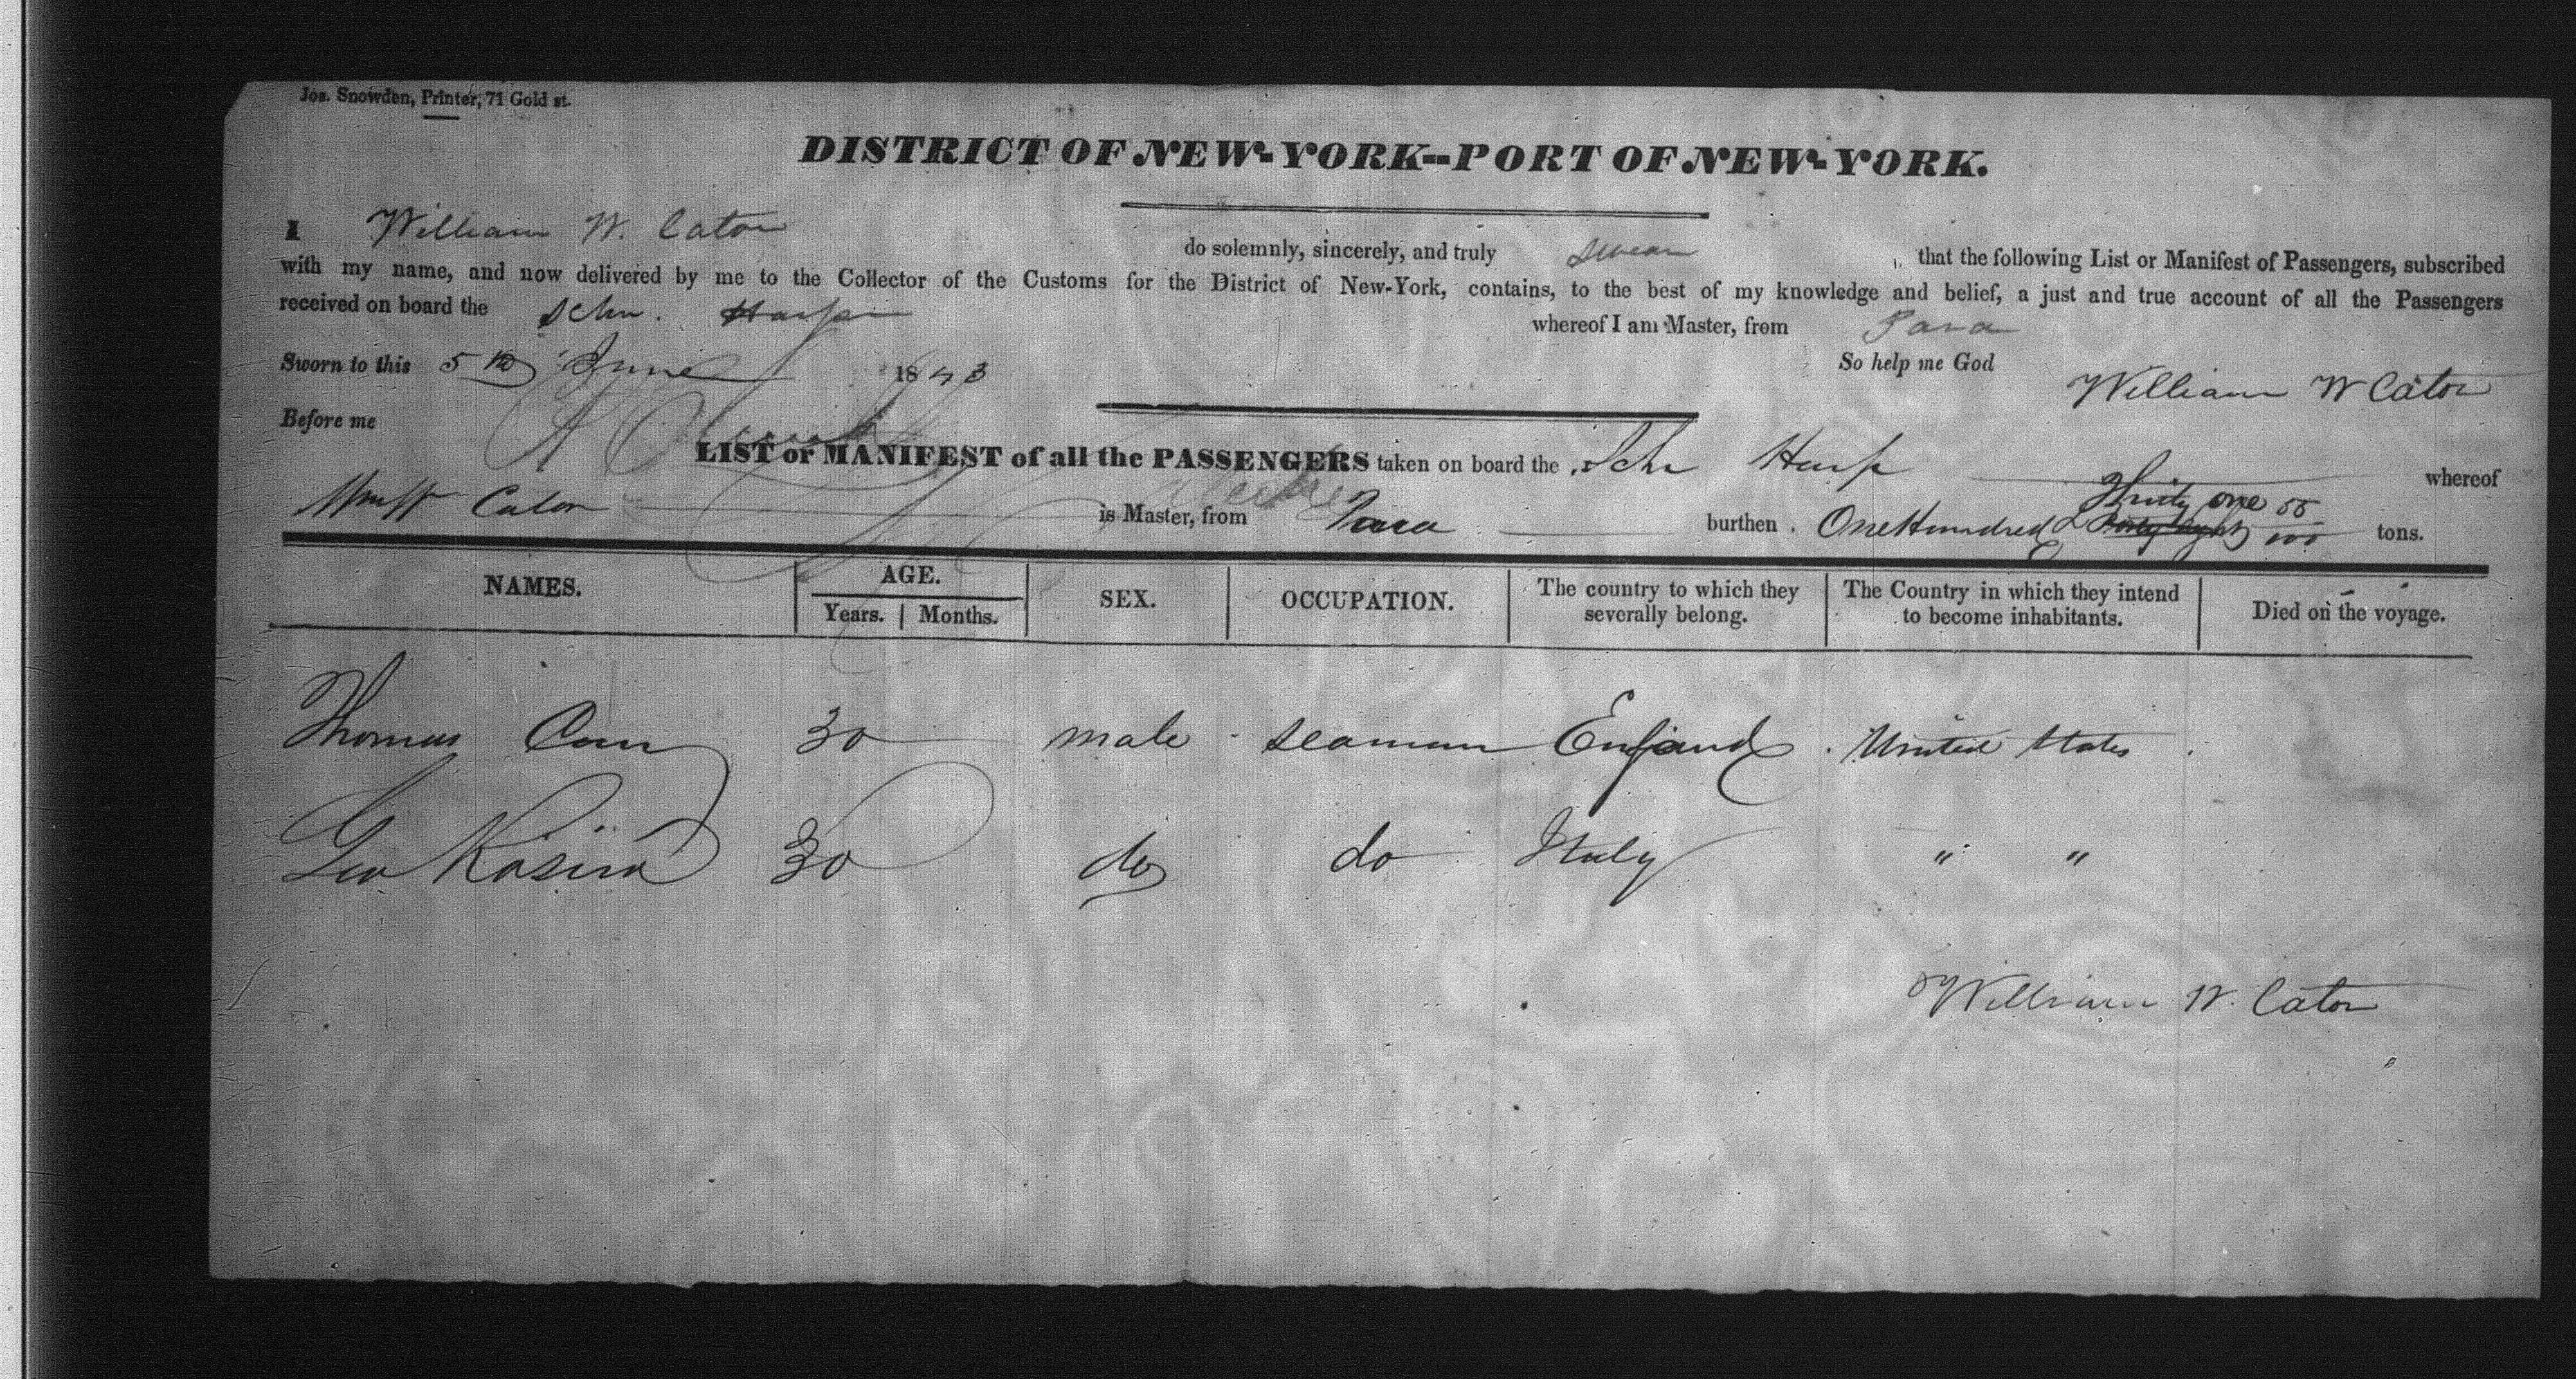 Jos. Snowden, Printer, 71 Gold st.
DISTRICT OF NEW-YORK--PORT OF NEW-YORK.
I William W. Caton do solemnly, sincerely, and truly swear that the following List or Manifest of Passengers, subscribed
with my name, and now delivered by me to the Collector of the Customs for the District of New-York, contains, to the best of my knowledge and belief, a just and true account of all the Passengers
received on board the Schr. Harp whereof I am Master, from Para
Sworn to this 5th June 1843 So help me God
William W Caton
Before me
LIST or MANIFEST of all the PASSENGERS taken on board the Schr Harp whereof
Caton is Master, from Para burthen One Hundred & Thirty one 55 tons.
NAMES. AGE. SEX. OCCUPATION. The country to which they severally belong. The Country in which they intend to become inhabitants. Died on the voyage.
Years. Months.
Thomas 30 male seaman England United States
Geo 30 do do Italy " "
William W. Caton